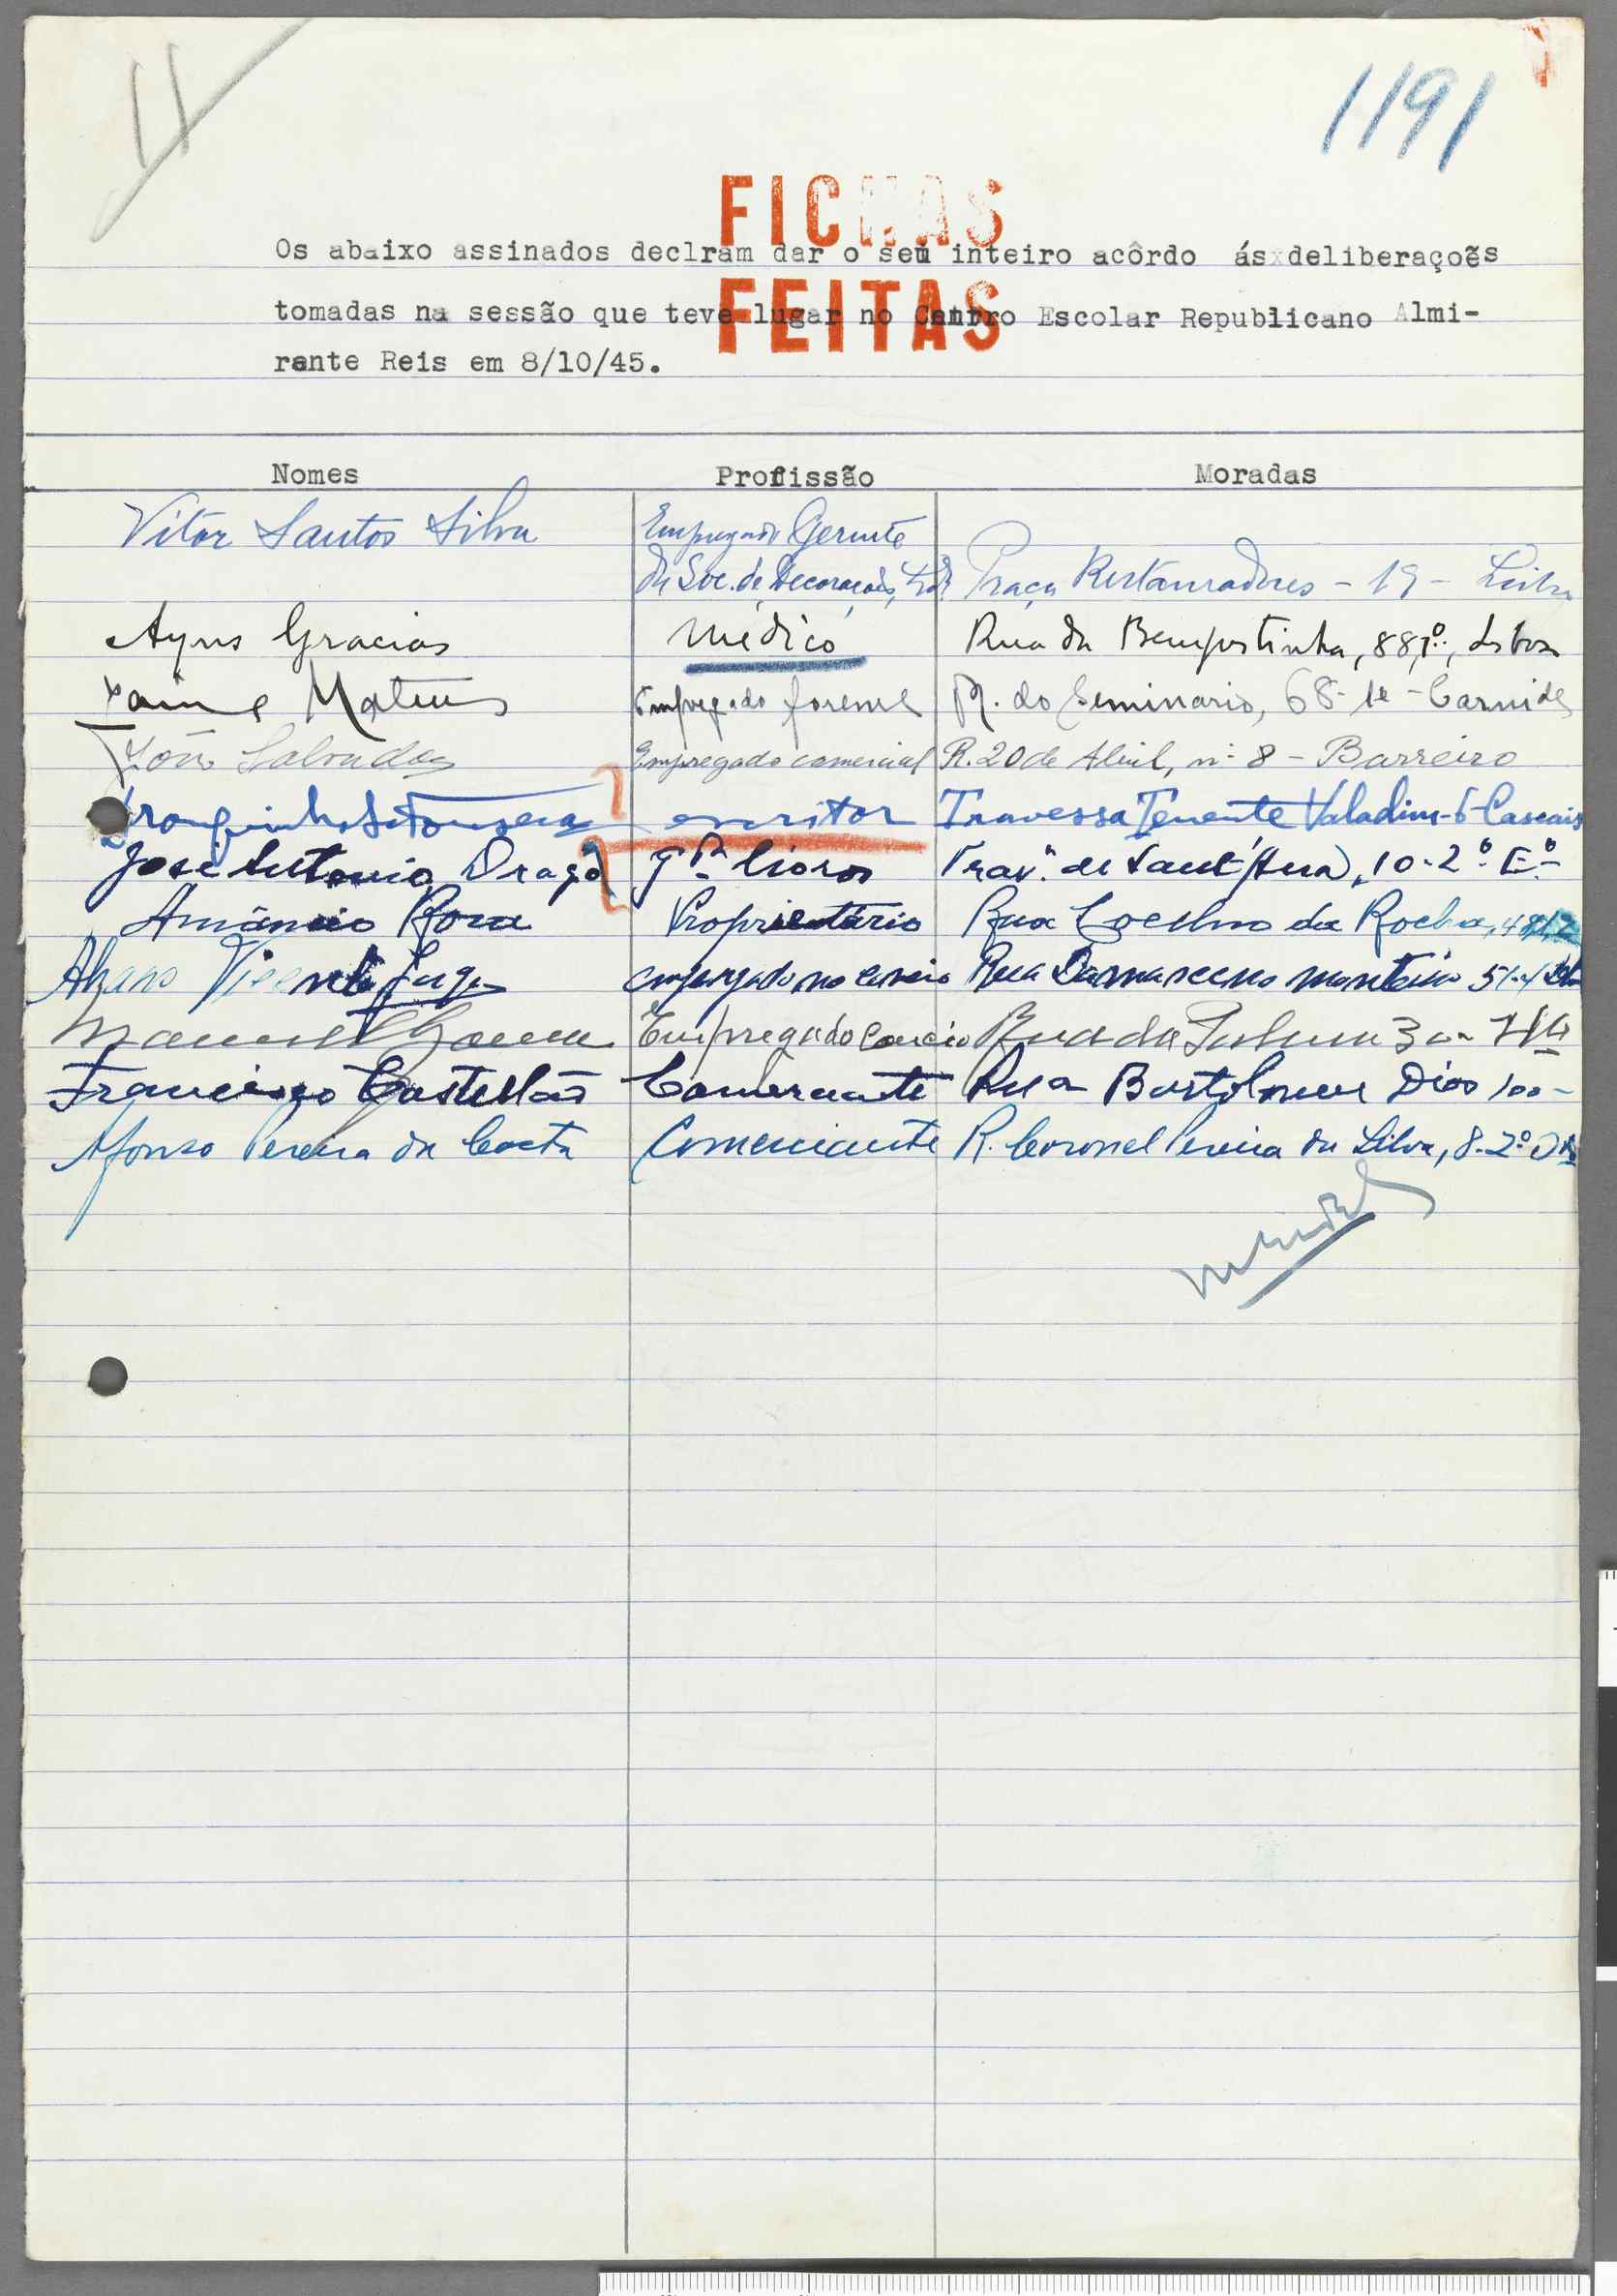 11
1191
FICHAS
FEITAS
Os abaixo assinados declram dar o seu inteiro acôrdo ás deliberaçoẽs
tomadas na sessão que teve lugar no Centro Escolar Republicano Almi-
rante Reis em 8/10/45.
Nomes Profissão Moradas
Vitor Santos Silva Empregado Gerente
da Soc. de Decorações, Lda Praça Restauradores - 19 - Lisboa
Ayres Gracias Médico Rua da Bempostinha, 88, 1º, Lisboa
Jaime Mateus Empregado forense R. do Seminario, 68-1º - Carnide
João Salvador Empregado comercial R. 20 de Abril, nº 8 - Barreiro
Branquinho da Fonseca escritor Travessa Tenente Valadim - 6 - Cascais
José Antonio Drago gda livros Trav. de Sant'Ana, 10-2º E.º
Amâncio Rosa Proprietário Rua Coelho da Rocha,
Alvaro Vicente empregado no comercio Rua Damasceno Monteiro
Manuel Empregado Comercio Rua da
Francisco Castelão Comerciante Rua Bartolomeu Dias 100-
Afonso Pereira da Costa Comerciante R. Coronel Pereira da Silva, 8-2º Dto